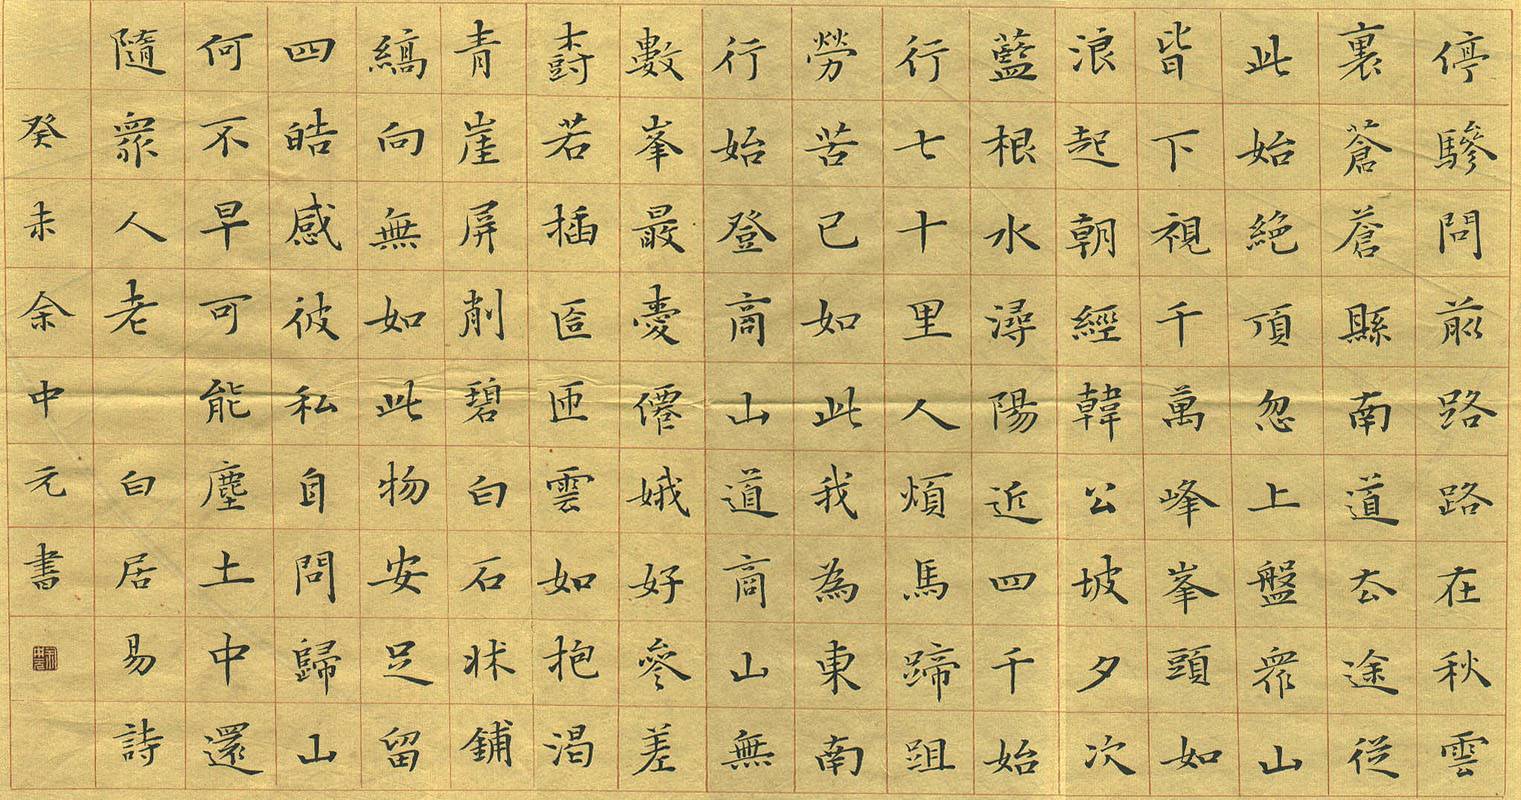 停驂問前路路在秋雲
裏蒼蒼縣南道去途從
此始絕頂忽上盤眾山
皆下視千萬峰峯頭如
浪起朝經韓公坡夕次
藍根水潯陽近四千始
行七十里人煩馬蹄跙
勞苦已如此我為東南
行始登商山道商山無
數峯最愛僊娥好參差
樹若插匼匝雲如抱渴
青崖屏削碧白石牀鋪
縞向無如此物安足留
四皓感彼私自問歸山
何不早可能塵土中還
隨眾人老 白居易詩
癸未余中元書